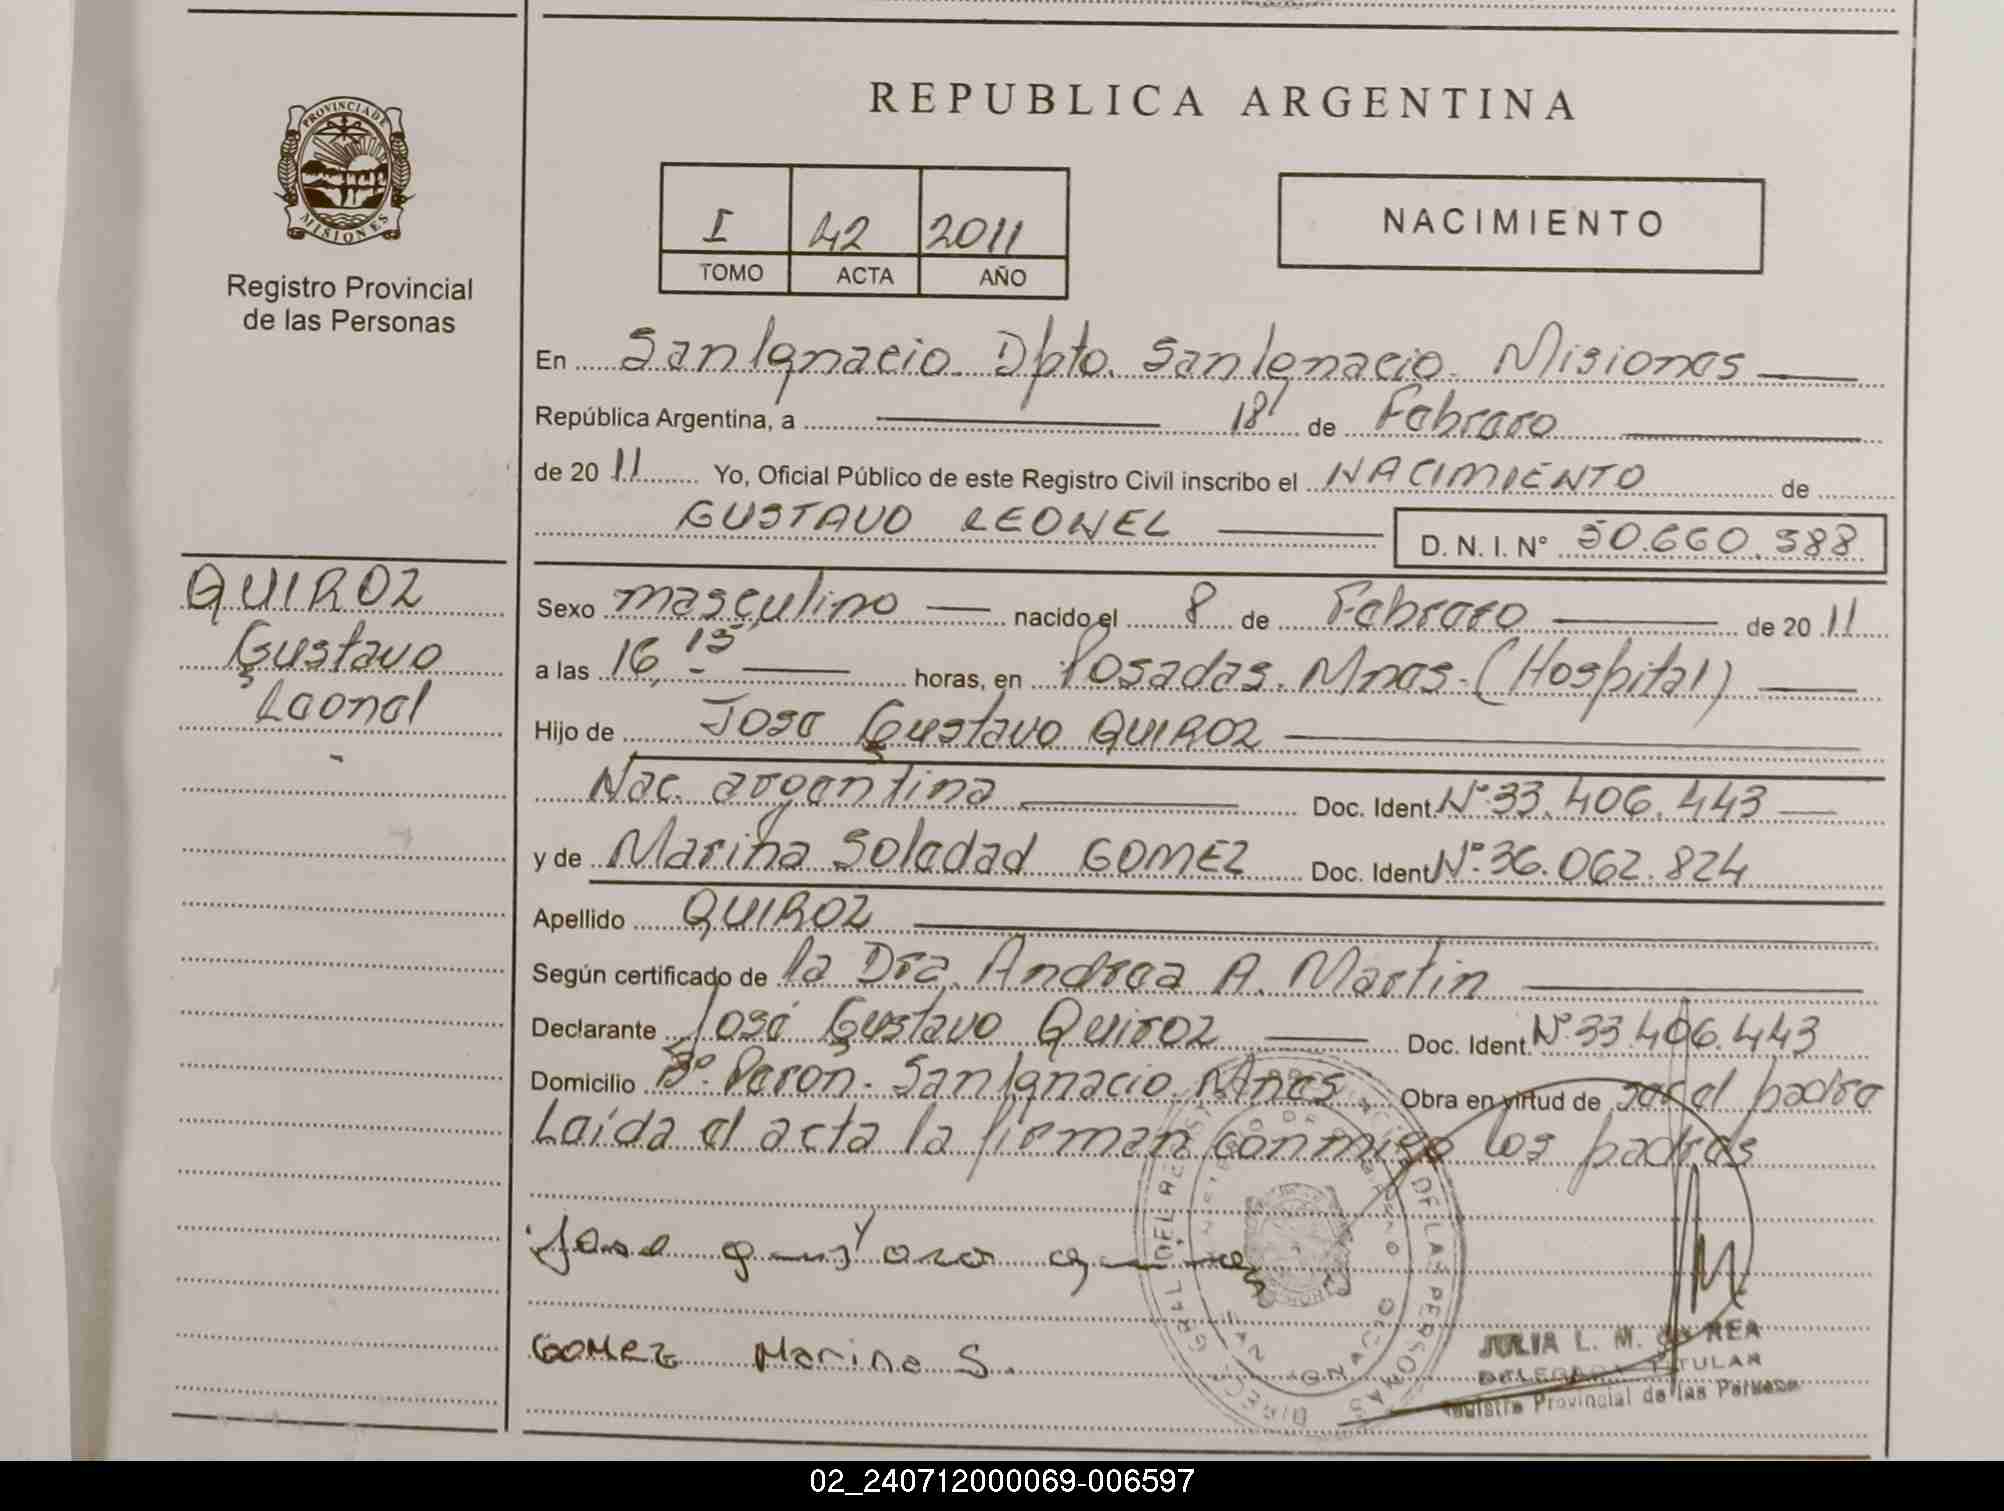 REPUBLICA ARGENTINA
PROVINCIA DE
MISIONES
Registro Provincial
de las Personas
I 42 2011
TOMO ACTA AÑO
NACIMIENTO
En San Ignacio. Dpto. San Ignacio. Misiones
República Argentina, a 18 de Febrero
de 20 11 Yo, Oficial Público de este Registro Civil inscribo el NACIMIENTO de
GUSTAVO LEONEL D. N. I. N° 50.660.588
QUIROZ
Gustavo
Leonel
Sexo masculino nacido el 8 de Febrero de 20 11
a las 16,15 horas, en Posadas. Mnes. (Hospital)
Hijo de Jose Gustavo QUIROZ
Nac. argentina Doc. Ident. N° 33.406.443
y de Marina Soledad GOMEZ Doc. Ident. N° 36.062.824
Apellido QUIROZ
Según certificado de la Dra. Andrea A. Martin
Declarante José Gustavo Quiroz Doc. Ident. N° 33.406.443
Domicilio B° Peron. San Ignacio. Mnes Obra en virtud de ser el padre
Leída el acta la firman conmigo los padres
GOMEZ Marina S.
JULIA L. M.
DELEGADA TITULAR
Registro Provincial de las Personas
02_240712000069-006597